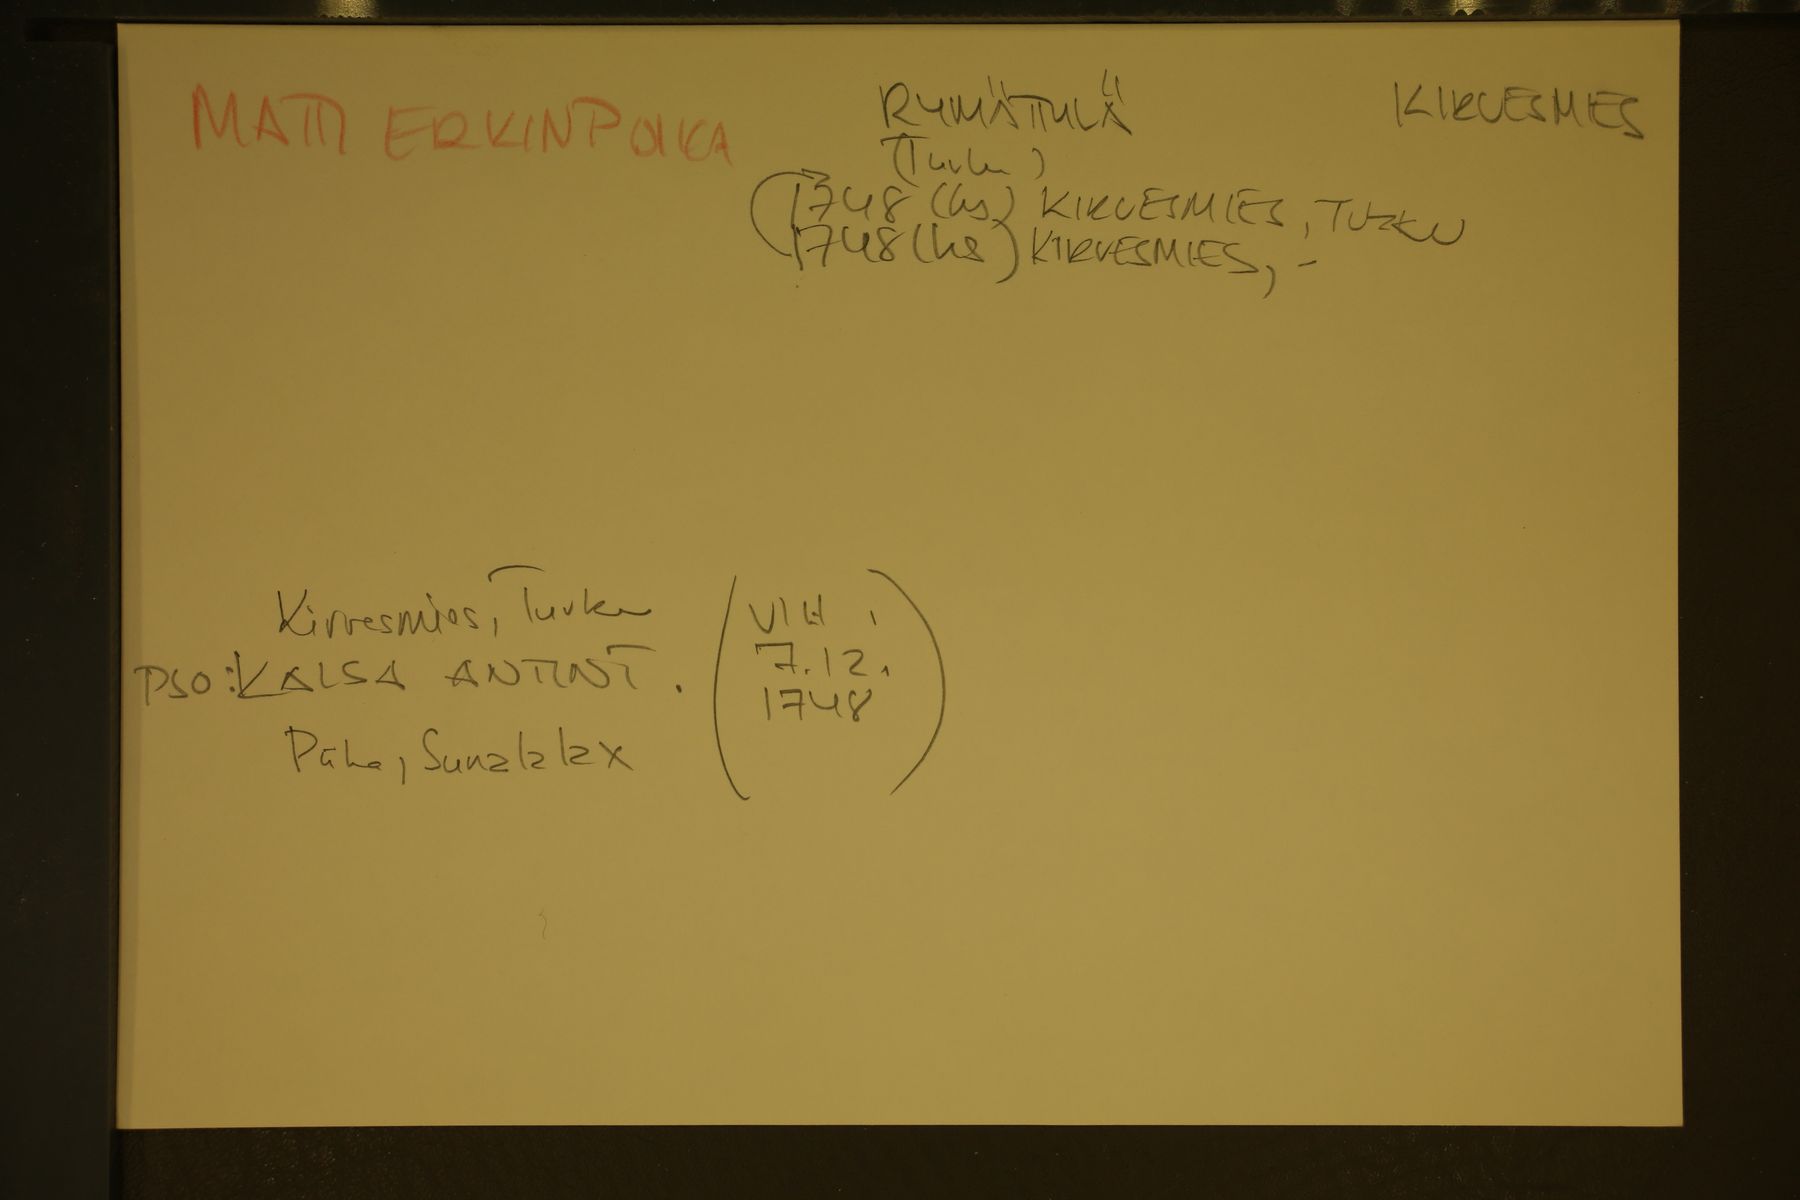 MATTI ERKINPOIKA RYMÄTTYLÄ KIRVESMIES
(Turku)
1748 (hs) KIRVESMIES, TURKU
1748 (hs) KIRVESMIES, -
Kirvesmies, Turku
PSO: VALSA ANTINT.
(VIH.
7.12.
1748)